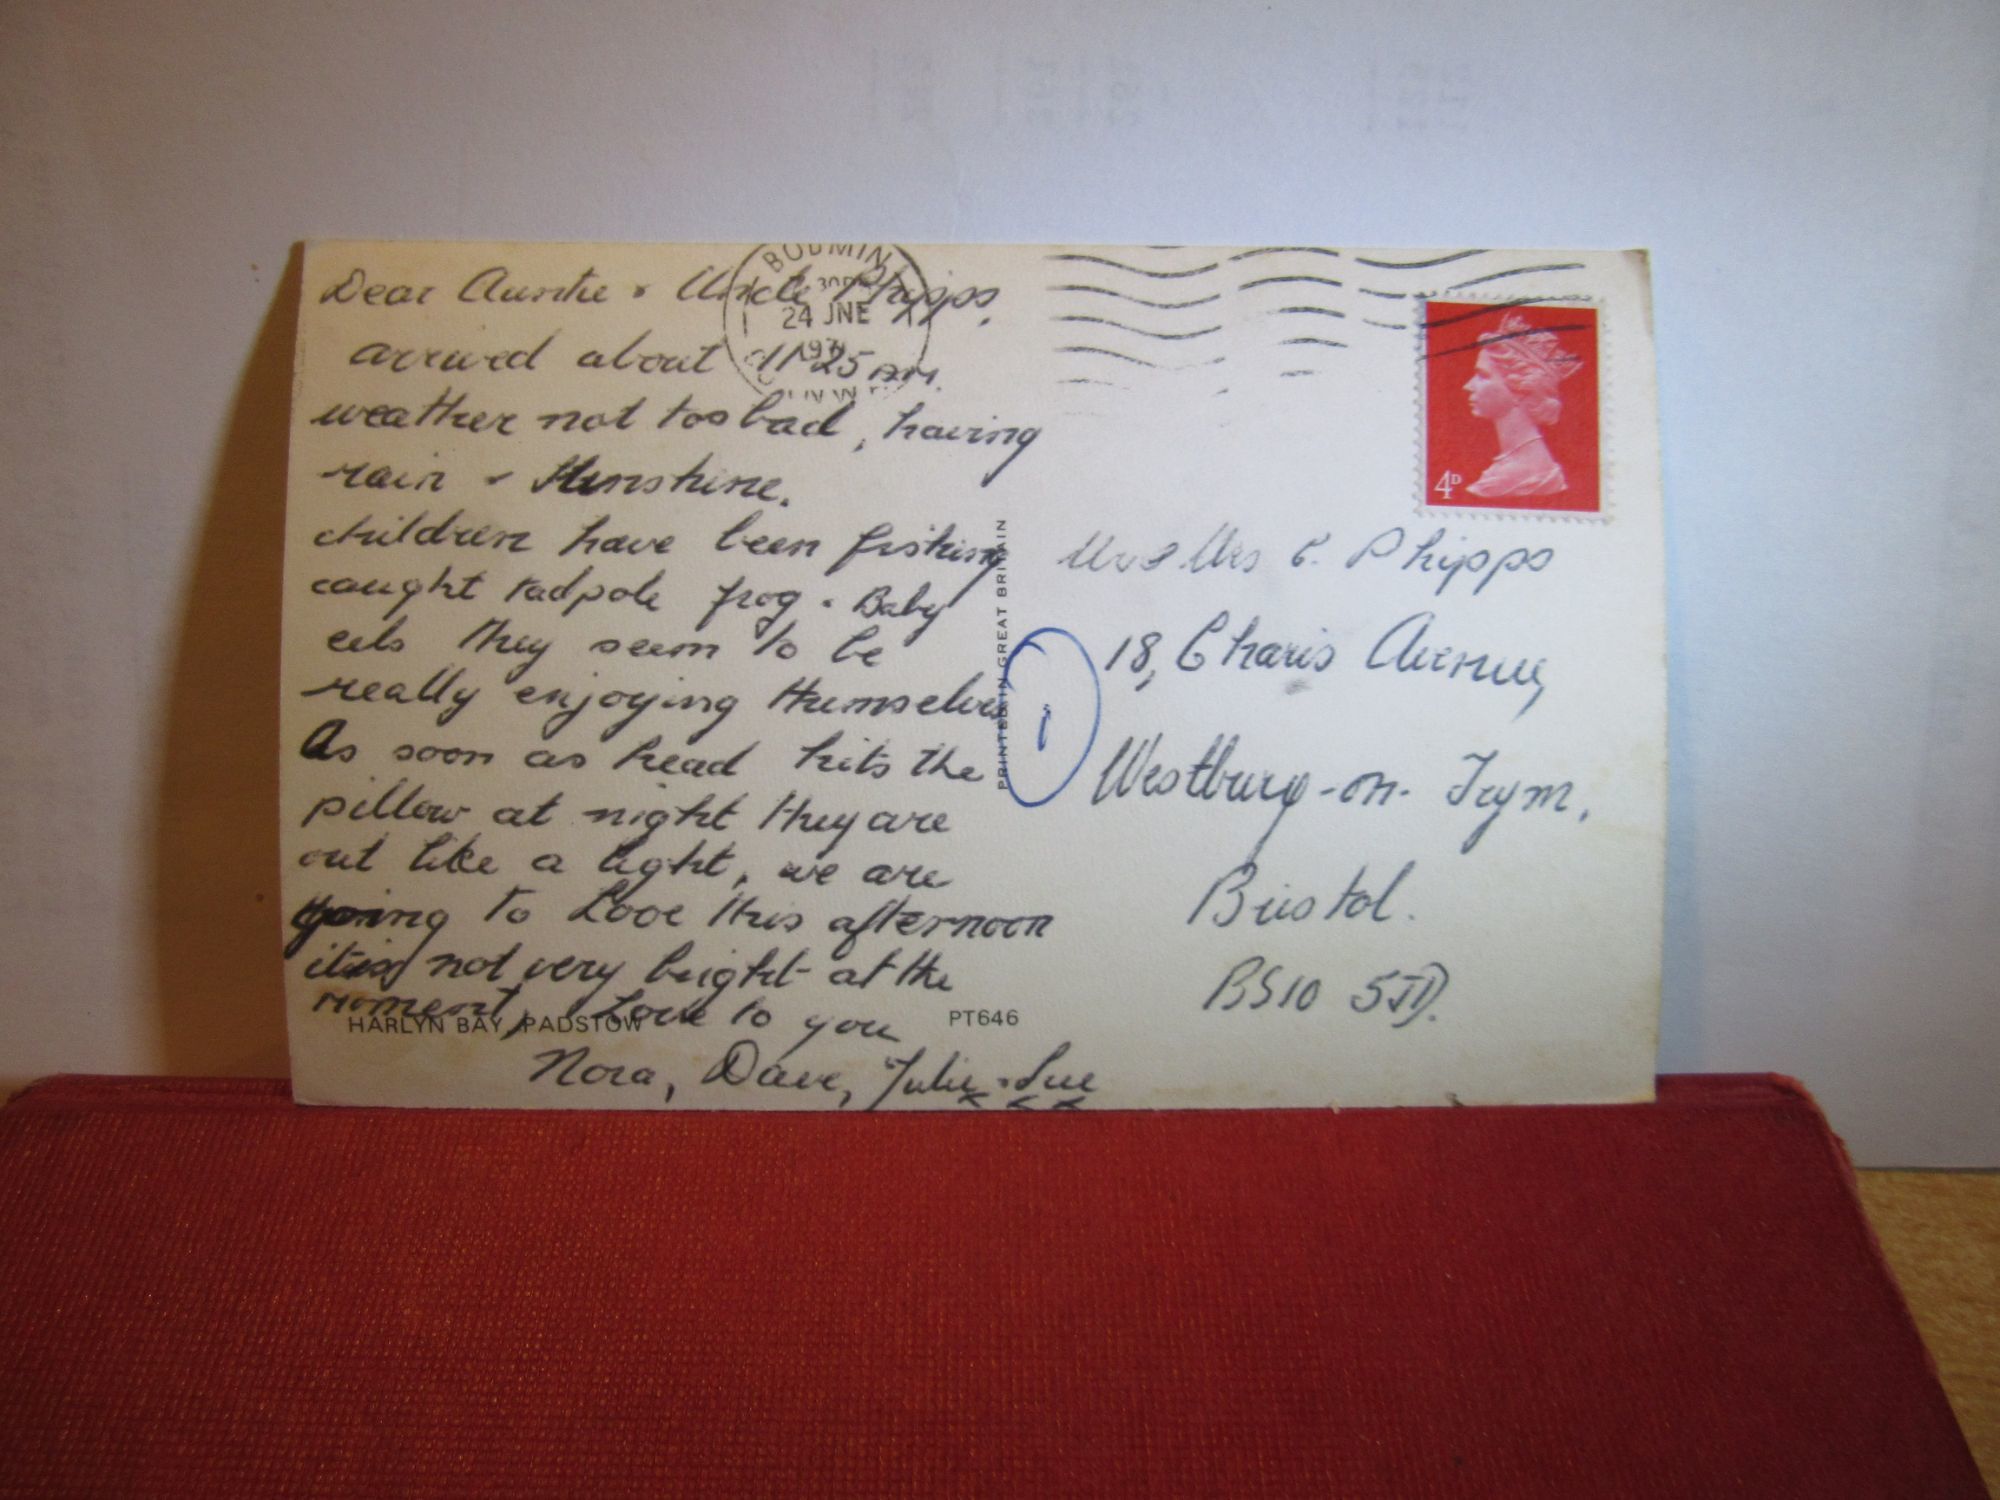 Dear Auntie & Uncle Phipps,
arrived about 11-25 AM.
weather not too bad, having
rain & Sunshine.
children have been fishing
caught tadpole frog & Baby
eels they seem to be
really enjoying themselves
As soon as head hits the
pillow at night they are
out like a light, we are
going to Looe this afternoon
it is not very bright at the
moment, Love to you
Nora, Dave, Julie & Sue
x x x
HARLYN BAY, PADSTOW
PT646
PRINTED IN GREAT BRITAIN
1
BODMIN
24 JNE
1971
4D
Mr & Mrs C. Phipps
18, Charis Avenue,
Westbury-on-Trym,
Bristol.
BS10 5JD.